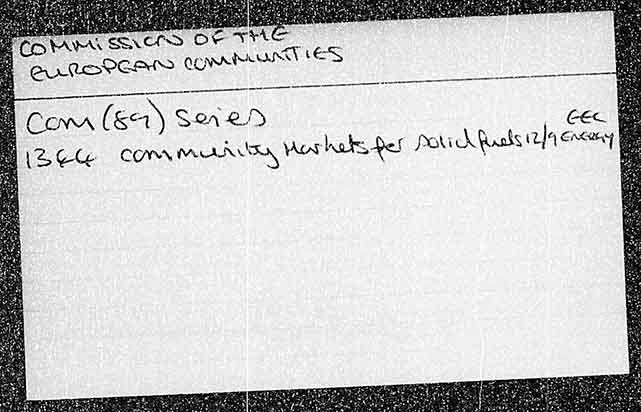 COMMISSION OF THE
EUROPEAN COMMUNITIES
Com (89) Series
EEC
1344 Community Markets for Solid fuels 12/9 ENERGY